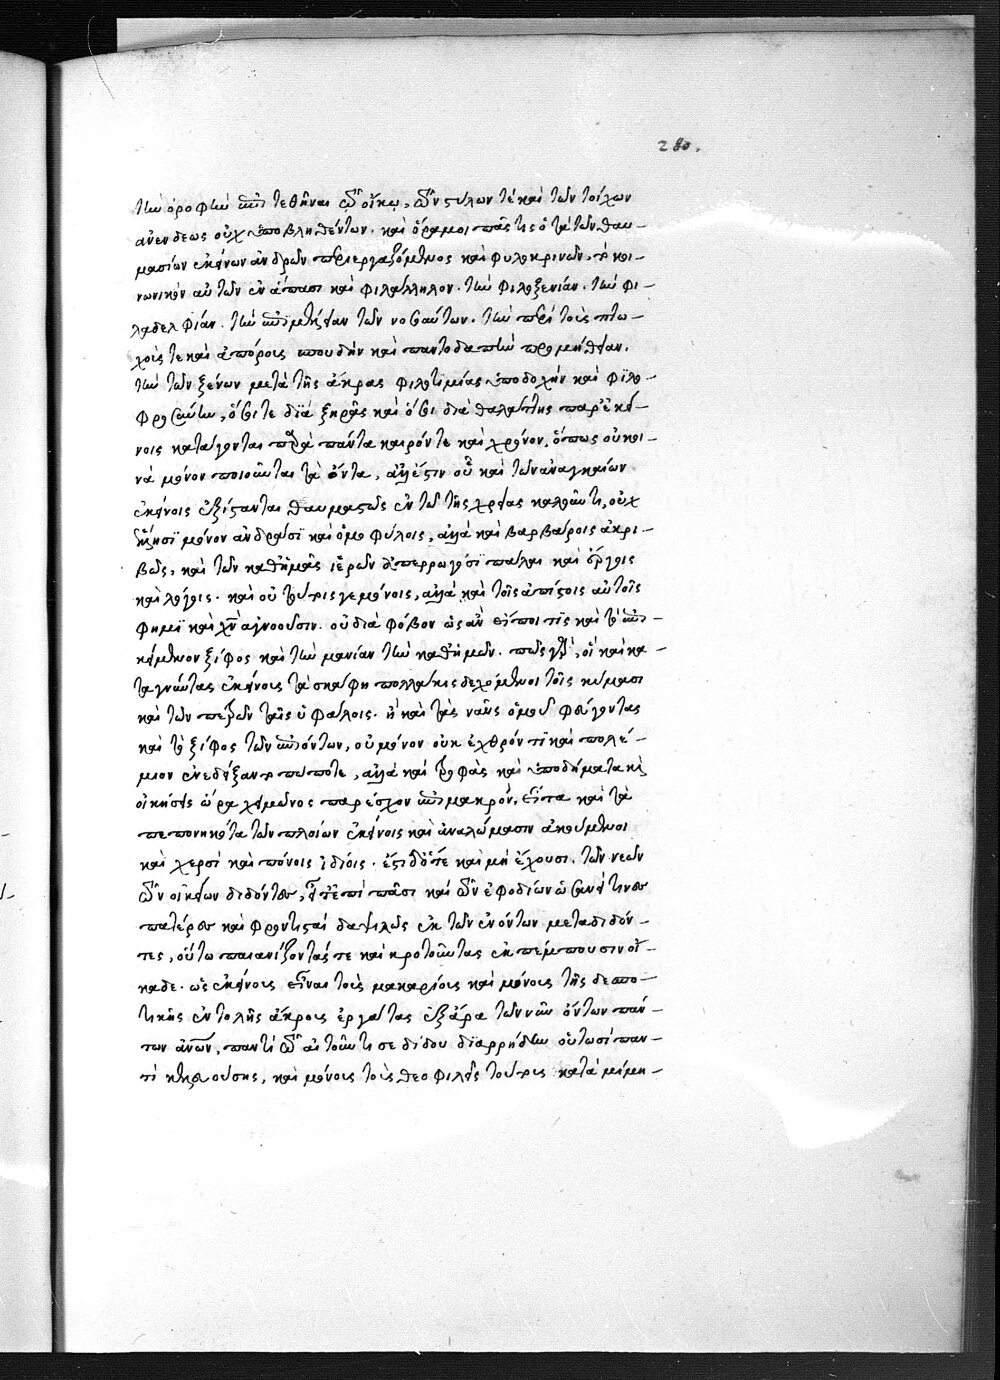 280.
τὴν ὀροφὴν ἐπιτεθῆναι τῷ οἴκῳ, τῶν στύλων τὲ καὶ τῶν τοίχων
ἀνενδεῶς οὐχ ὑποβληθέντων. καὶ ὅρα μοι πᾶς τις ὁ τὰ τῶν θαυ-
μασίων ἐκείνων ἀνδρῶν περιεργαζόμενος καὶ φυλοκρινῶν, τὸ κοι-
νωνικὸν αὐτῶν ἐν ἅπασι καὶ φιλάλληλον. τὴν φιλοξενίαν. τὴν φι-
λαδελφίαν. τὴν ἐπιμέλειαν τῶν νοσούντων. τὴν περὶ τοὺς πτω-
χοὺς τε καὶ ἀπόρους σπουδὴν καὶ παντοδαπὴν προμήθειαν.
τὴν τῶν ξένων μετὰ τῆς ἄκρας φιλοτιμίας ὑποδοχὴν καὶ φιλο-
φροσύνην, ὅσοι τε διὰ ξηρᾶς καὶ ὅσοι διὰ θαλάττης παρ' ἐκεί-
νοις κατάγονται παρὰ πάντα καιρόν τε καὶ χρόνον, ὅπως οὐ κοι-
νὰ μόνον ποιοῦνται τὰ ὄντα, ἀλλ' ἔστιν οὗ καὶ τῶν ἀναγκαίων
ἐκείνοις ἐξίστανται θαυμαστῶς ἐν τῷ τῆς χρείας καλοῦντι, οὐχ
μόνον ἀνδράσι καὶ ὁμοφύλοις, ἀλλὰ καὶ βαρβάροις ἀκρι-
βῶς, καὶ τῶν καθ' ἡμᾶς ἱερῶν ἀπερρωγόσι πάλαι καὶ ἔργοις
καὶ λόγοις. καὶ οὐ τούτοις γε μόνοις, ἀλλὰ καὶ τοῖς ἀπίστοις αὐτοῖς
φημὶ καὶ χν ἀγνοοῦσιν. οὐ διὰ φόβον ὡς ἂν εἴποι τὶς καὶ τὸ ἐπι-
κείμενον ξίφος καὶ τὴν μανίαν τὴν καθ' ἡμῶν. πῶς γὰρ, οἵ καὶ κα-
ταγνύντας ἐκείνους τὰ σκάφη πολλάκις δεχόμενοι τοῖς κύμασι
καὶ τῶν πετρῶν ταῖς ὑφάλοις. ἢ καὶ τὰς ναῦς ὁμοῦ φεύγοντας
καὶ τὸ ξίφος τῶν ἐπιόντων, οὐ μόνον οὐκ ἐχθρόν τι καὶ πολέ-
μιον ἐνεδείξαντο πώποτε, ἀλλὰ καὶ τροφὰς καὶ ὑποδήματα καὶ
οἰκήσεις ὥρα χειμῶνος παρέσχον ἐπιμακρόν. εἶτα καὶ τὰ
πεπονηκότα τῶν πλοίων ἐκείνοις καὶ ἀναλώμασιν ἀκούμενοι
καὶ χερσὶ καὶ πόνοις ἰδίοις. ἔστι δ' ὅτε καὶ μὴ ἔχουσι. τῶν νεῶν
τῶν οἰκείων διδόντες, ἔτι ἐπὶ πᾶσι καὶ τῶν ἐφοδίων ὡσεί τινες
πατέρες καὶ φροντισταὶ δαψιλῶς ἐκ τῶν ἐνόντων μεταδιδόν-
τες, οὕτω παιανίζοντάς τε καὶ κροτοῦντας ἐκπέμπουσιν οἴ-
καδε. ὡς ἐκείνους εἶναι τοὺς μακαρίους καὶ μόνους τῆς δεσπο-
τικῆς ἐντολῆς ἄκρους ἐργάτας ἐξ ἄρα τῶν νῦν ὄντων πάν-
των ἀνων, παντὶ τῷ αἰτοῦντι σε δίδου διαρρήδην οὑτωσὶ παν-
τὶ κηρυττούσης, καὶ μόνους τοὺς θεοφιλεῖς τούτους κατὰ μίμη-